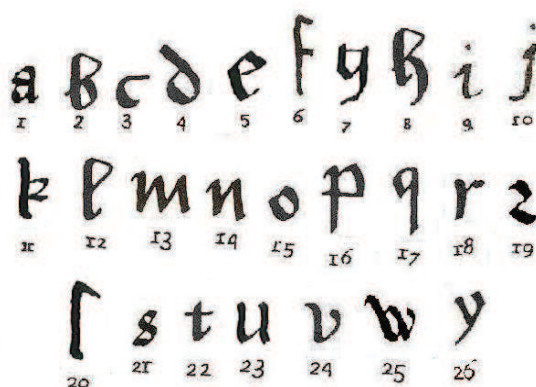 a b c d e f g h i j
1 2 3 4 5 6 7 8 9 10
k l m n o p q r ꝛ
11 12 13 14 15 16 17 18 19
ſ s t u v w y
20 21 22 23 24 25 26